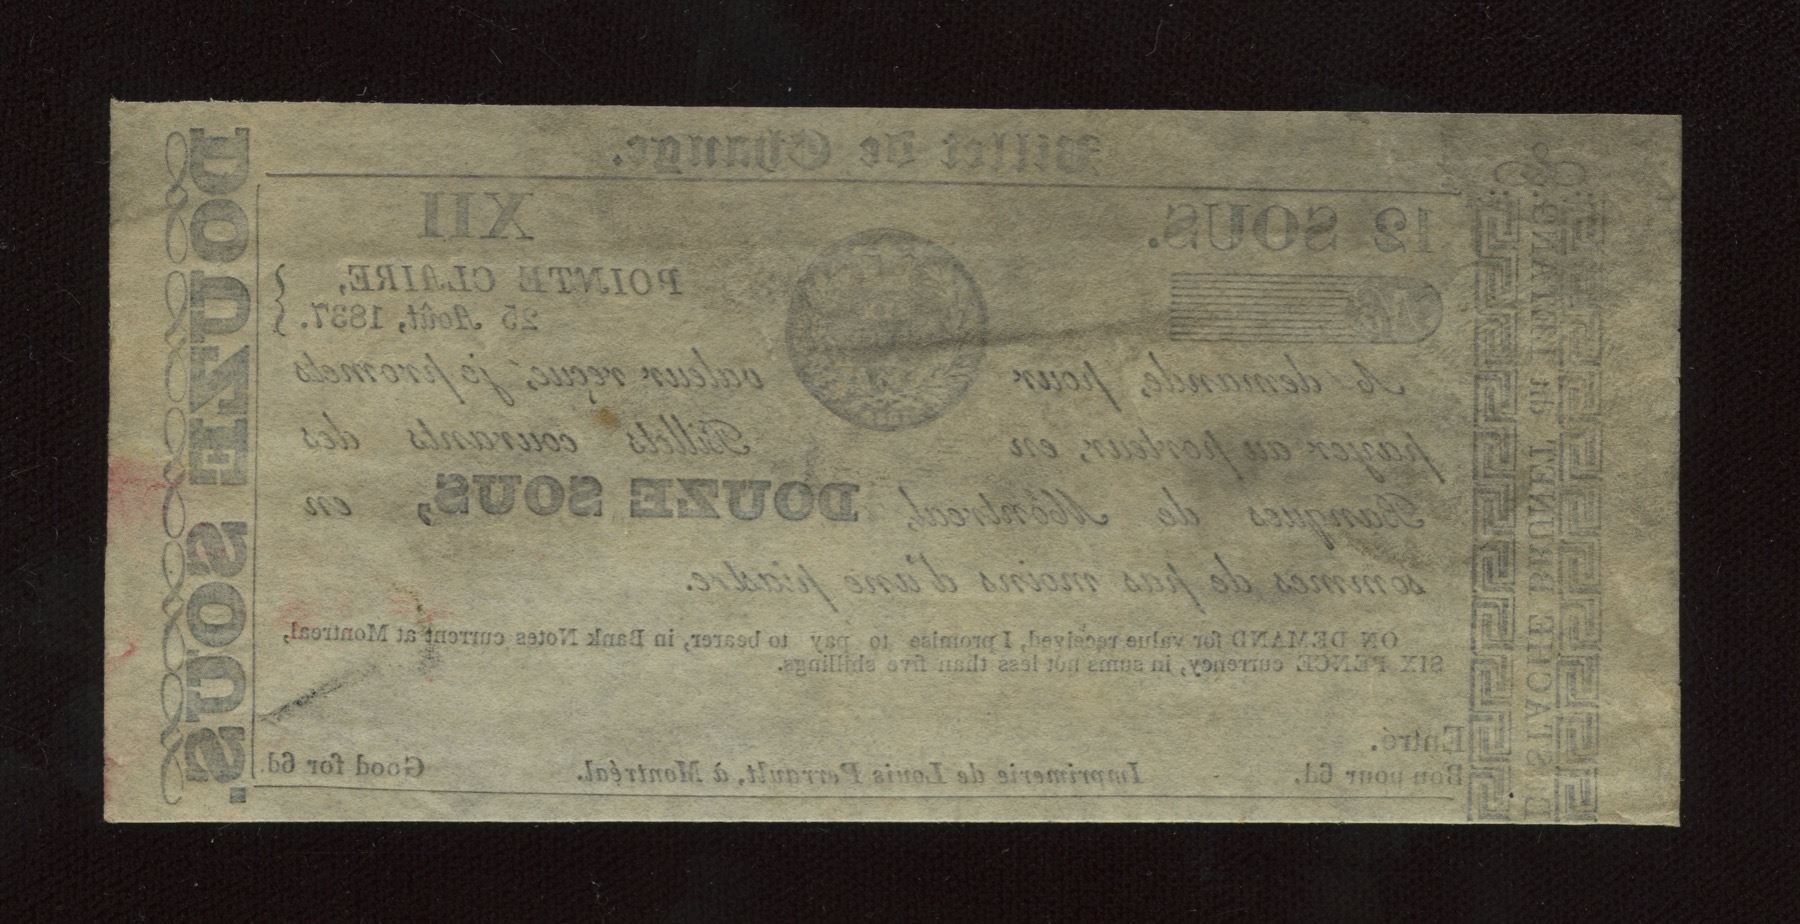 Billet de Change.
12 SOUS.
XII
POINTE CLAIRE,
25 Août, 1837.
A demande, pour valeur reçue, je promets
payer au porteur, en Billets courants des
Banques de Montreal, DOUZE SOUS, en
sommes de pas moins d'une piastre.
ON DEMAND for value received, I promise to pay to bearer, in Bank Notes current at Montreal,
SIX PENCE currency, in sums not less than five shillings.
Entré.
Bon pour 6d. Imprimerie de Louis Perrault, à Montréal. Good for 6d.
EUSTACHE BRUNET dit LETANG.
DOUZE SOUS.